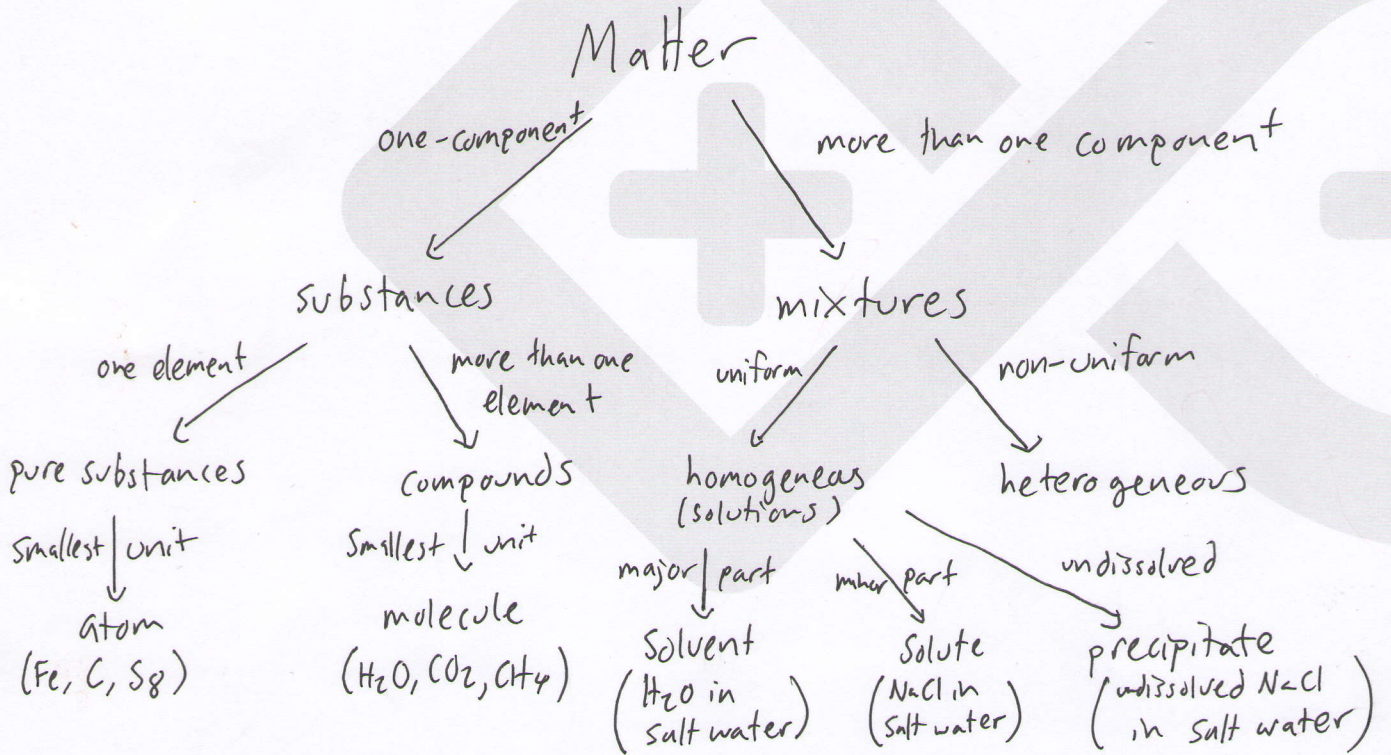 Matter
one-component
more than one component
substances
mixtures
one element
more than one
element
uniform
non-uniform
pure substances
compounds
homogeneous
(solutions)
heterogeneous
smallest unit
smallest unit
major part
minor part
undissolved
atom
(Fe, C, S8)
molecule
(H2O, CO2, CH4)
solvent
(H2O in
salt water)
solute
(NaCl in
salt water)
precipitate
(undissolved NaCl
in salt water)